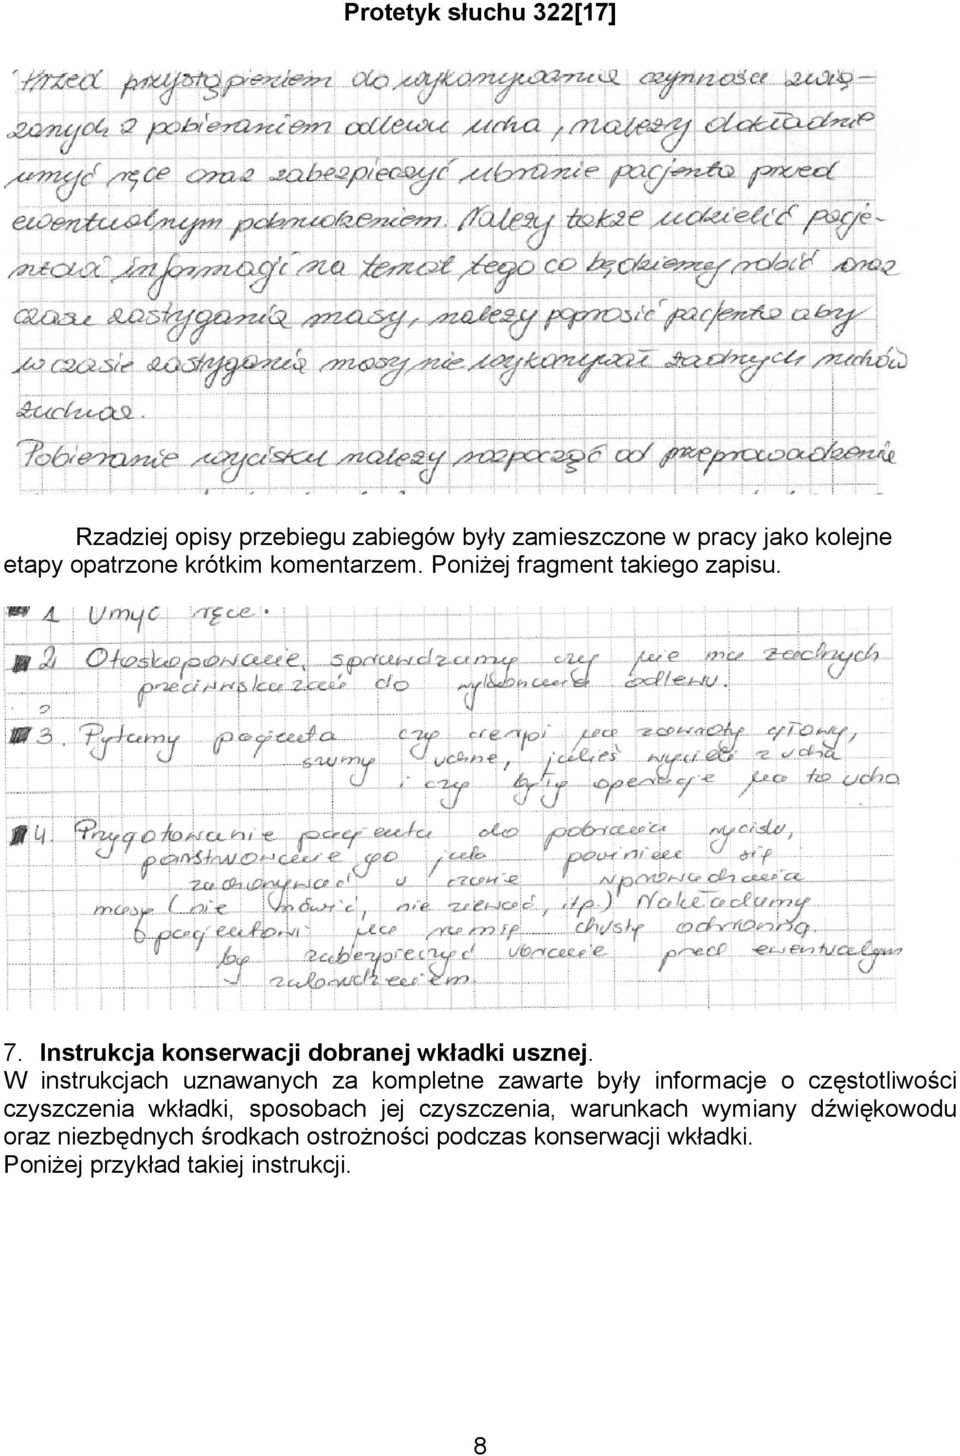 Protetyk słuchu 322[17]
Przed przystąpieniem do wykonywania czynności zwią-
zanych z pobieraniem odlewu ucha, należy dokładnie
umyć ręce oraz zabezpieczyć ubranie pacjenta przed
ewentualnym pobrudzeniem. Należy także udzielić pacje-
ntowi informacji na temat tego co będziemy robić oraz
czasu zastygania masy, należy poprosić pacjenta aby
w czasie zastygania masy nie wykonywał żadnych ruchów
żuchwą.
Pobieranie wycisku należy rozpocząć od przeprowadzenia
Rzadziej opisy przebiegu zabiegów były zamieszczone w pracy jako kolejne
etapy opatrzone krótkim komentarzem. Poniżej fragment takiego zapisu.
1 Umyć ręce.
2. Otoskopowanie, sprawdzamy czy nie ma żadnych
przeciwwskazań do wykonania odlewu.
3. Pytamy pacjenta czy cierpi na zawroty głowy,
szumy uszne, jakieś wycieki z ucha
i czy były operacje na to ucho
4. Przygotowanie pacjenta do pobrania wycisku,
poinstruowanie go jak powinien się
zachowywać w czasie wprowadzania
masy (nie mówić, nie ziewać, itp.) Nakładamy
pacjentowi na ramię chustę ochronną.
by zabezpieczyć ubranie przed ewentualnym
zabrudzeniem.
7. Instrukcja konserwacji dobranej wkładki usznej.
W instrukcjach uznawanych za kompletne zawarte były informacje o częstotliwości
czyszczenia wkładki, sposobach jej czyszczenia, warunkach wymiany dźwiękowodu
oraz niezbędnych środkach ostrożności podczas konserwacji wkładki.
Poniżej przykład takiej instrukcji.
8